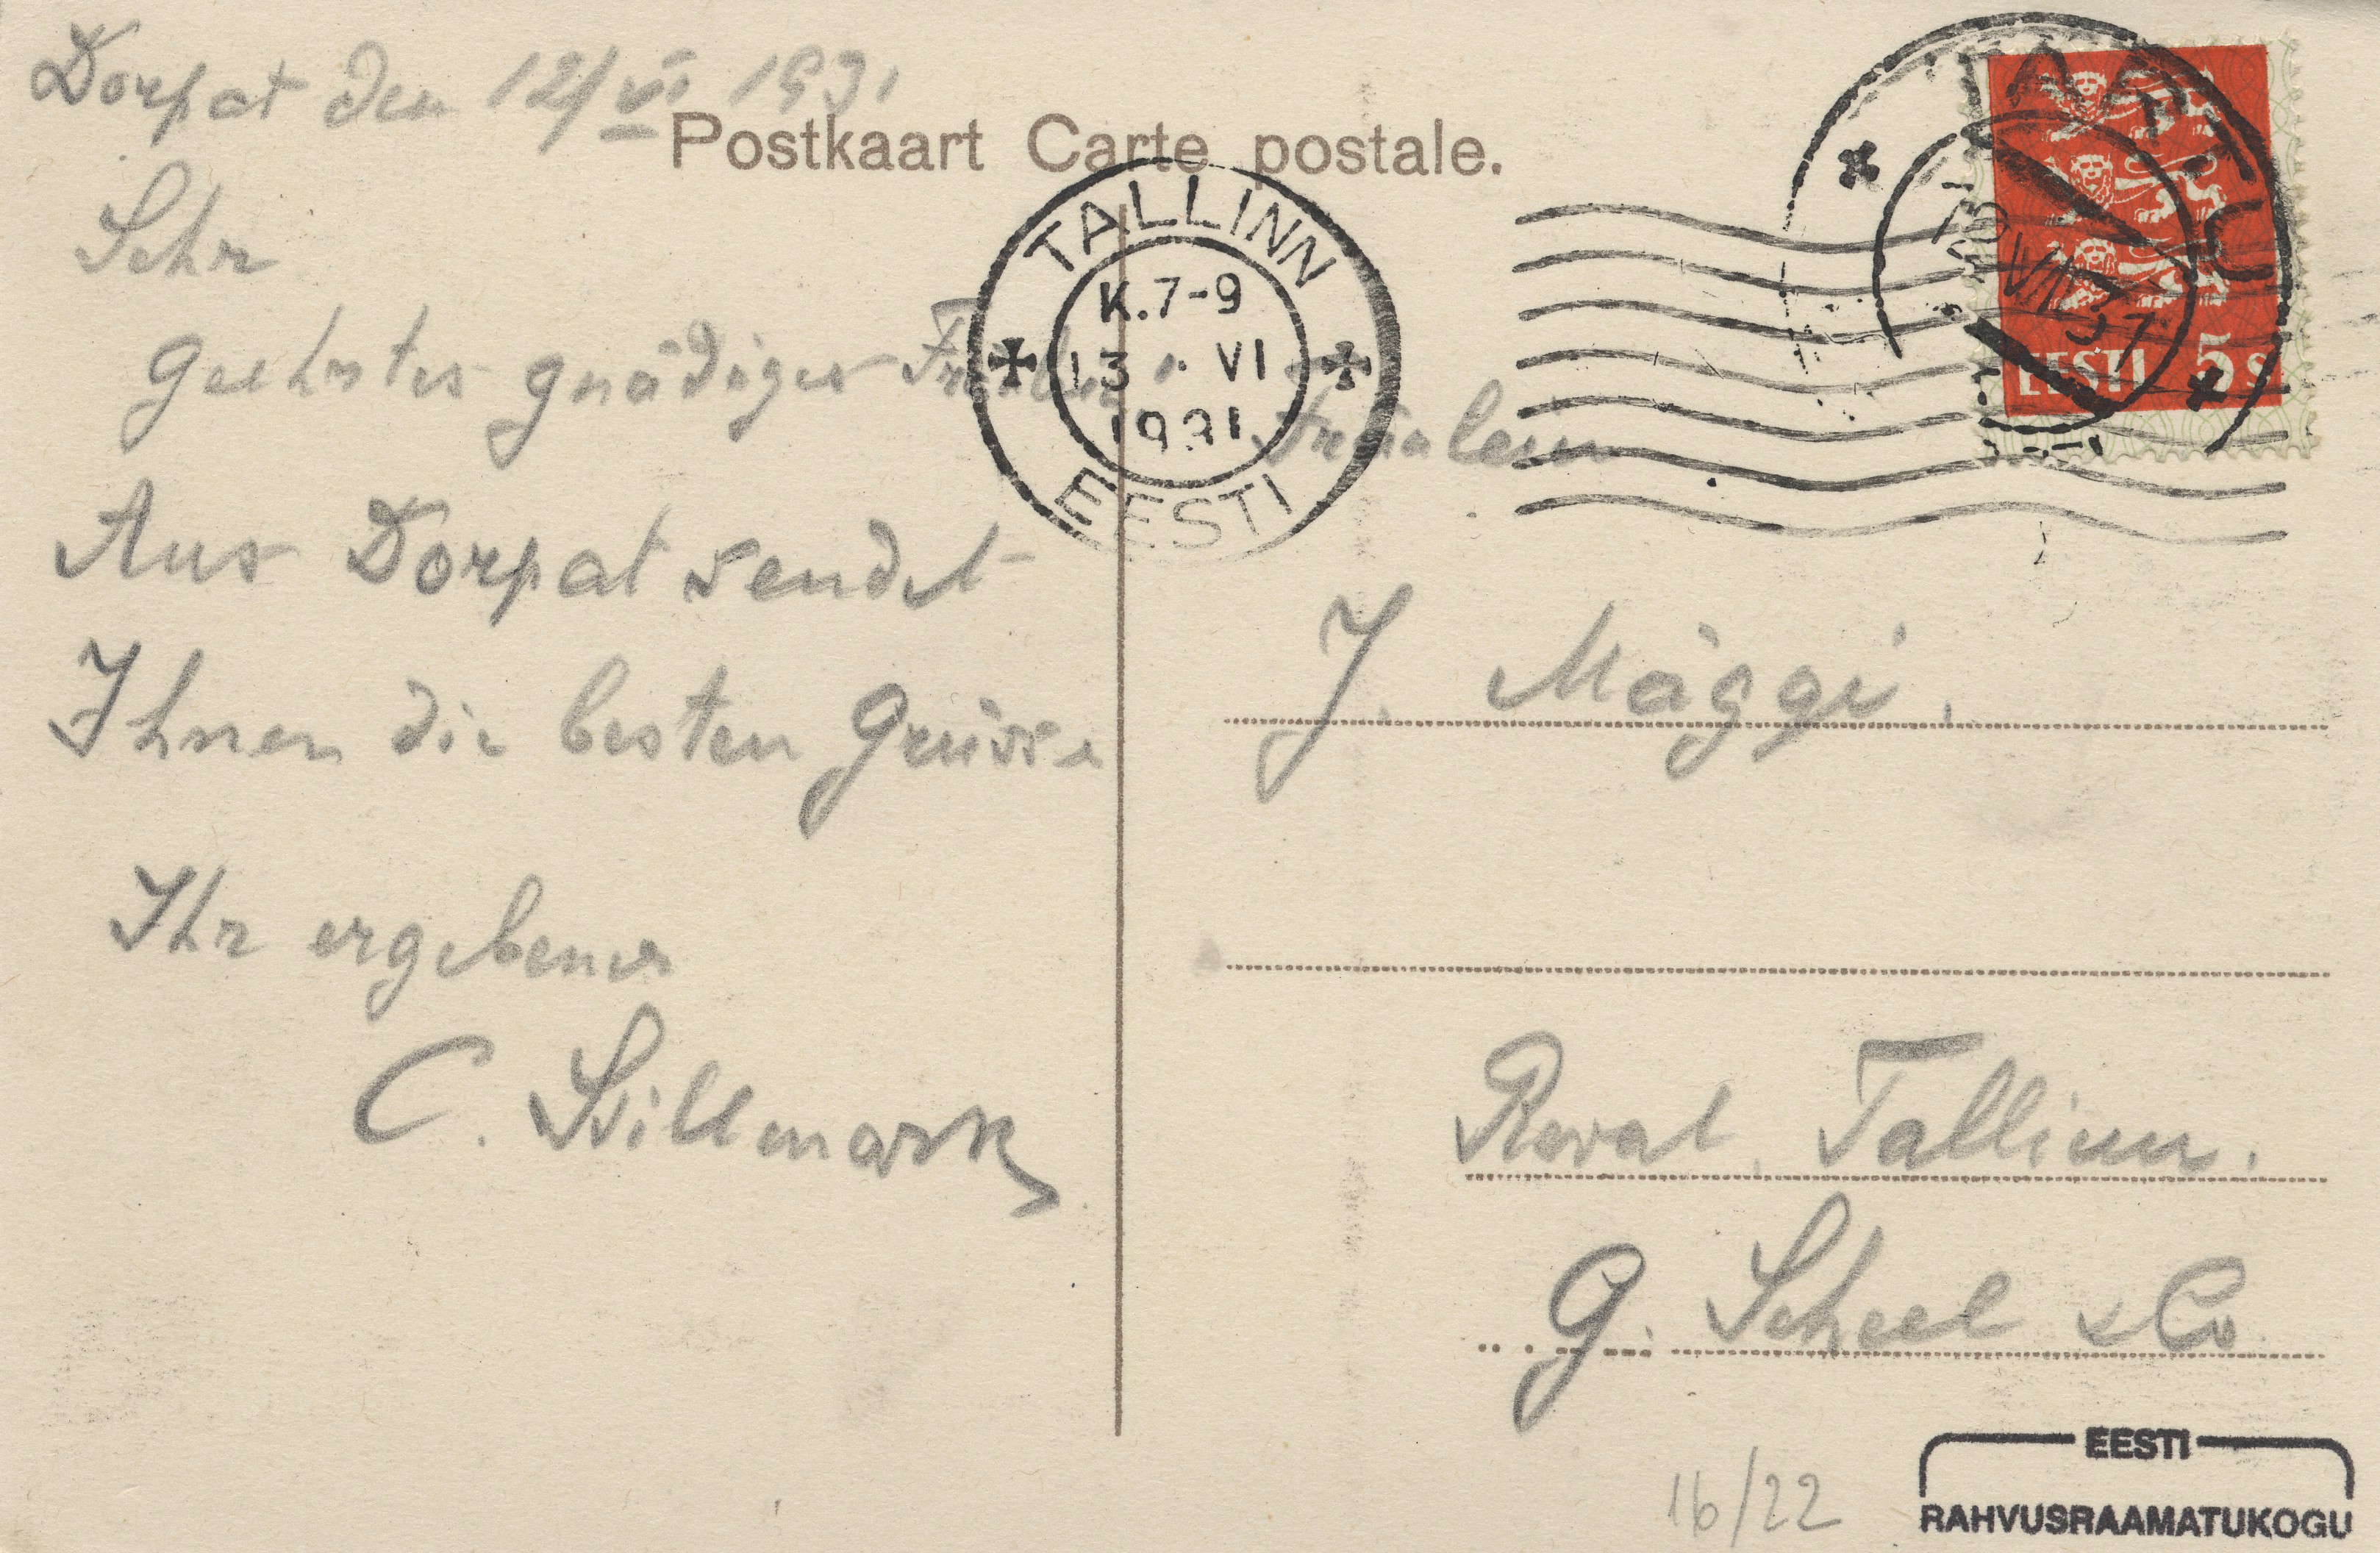 Dorpat den 12/VI 1931
Postkaart Carte postale.
Sehr
geehrtes gnädiges Fräulein
Aus Dorpat sendet
Ihnen die besten Grüsse
Ihr ergebener
C. Sillmark
TALLINN
K. 7-9
13 · VI
1931
EESTI
TARTU
13 VI 31
EESTI 5 s
Fräulein
J. Mäggi.
Reval, Tallinn.
G. Scheel & Co
16/22
EESTI
RAHVUSRAAMATUKOGU